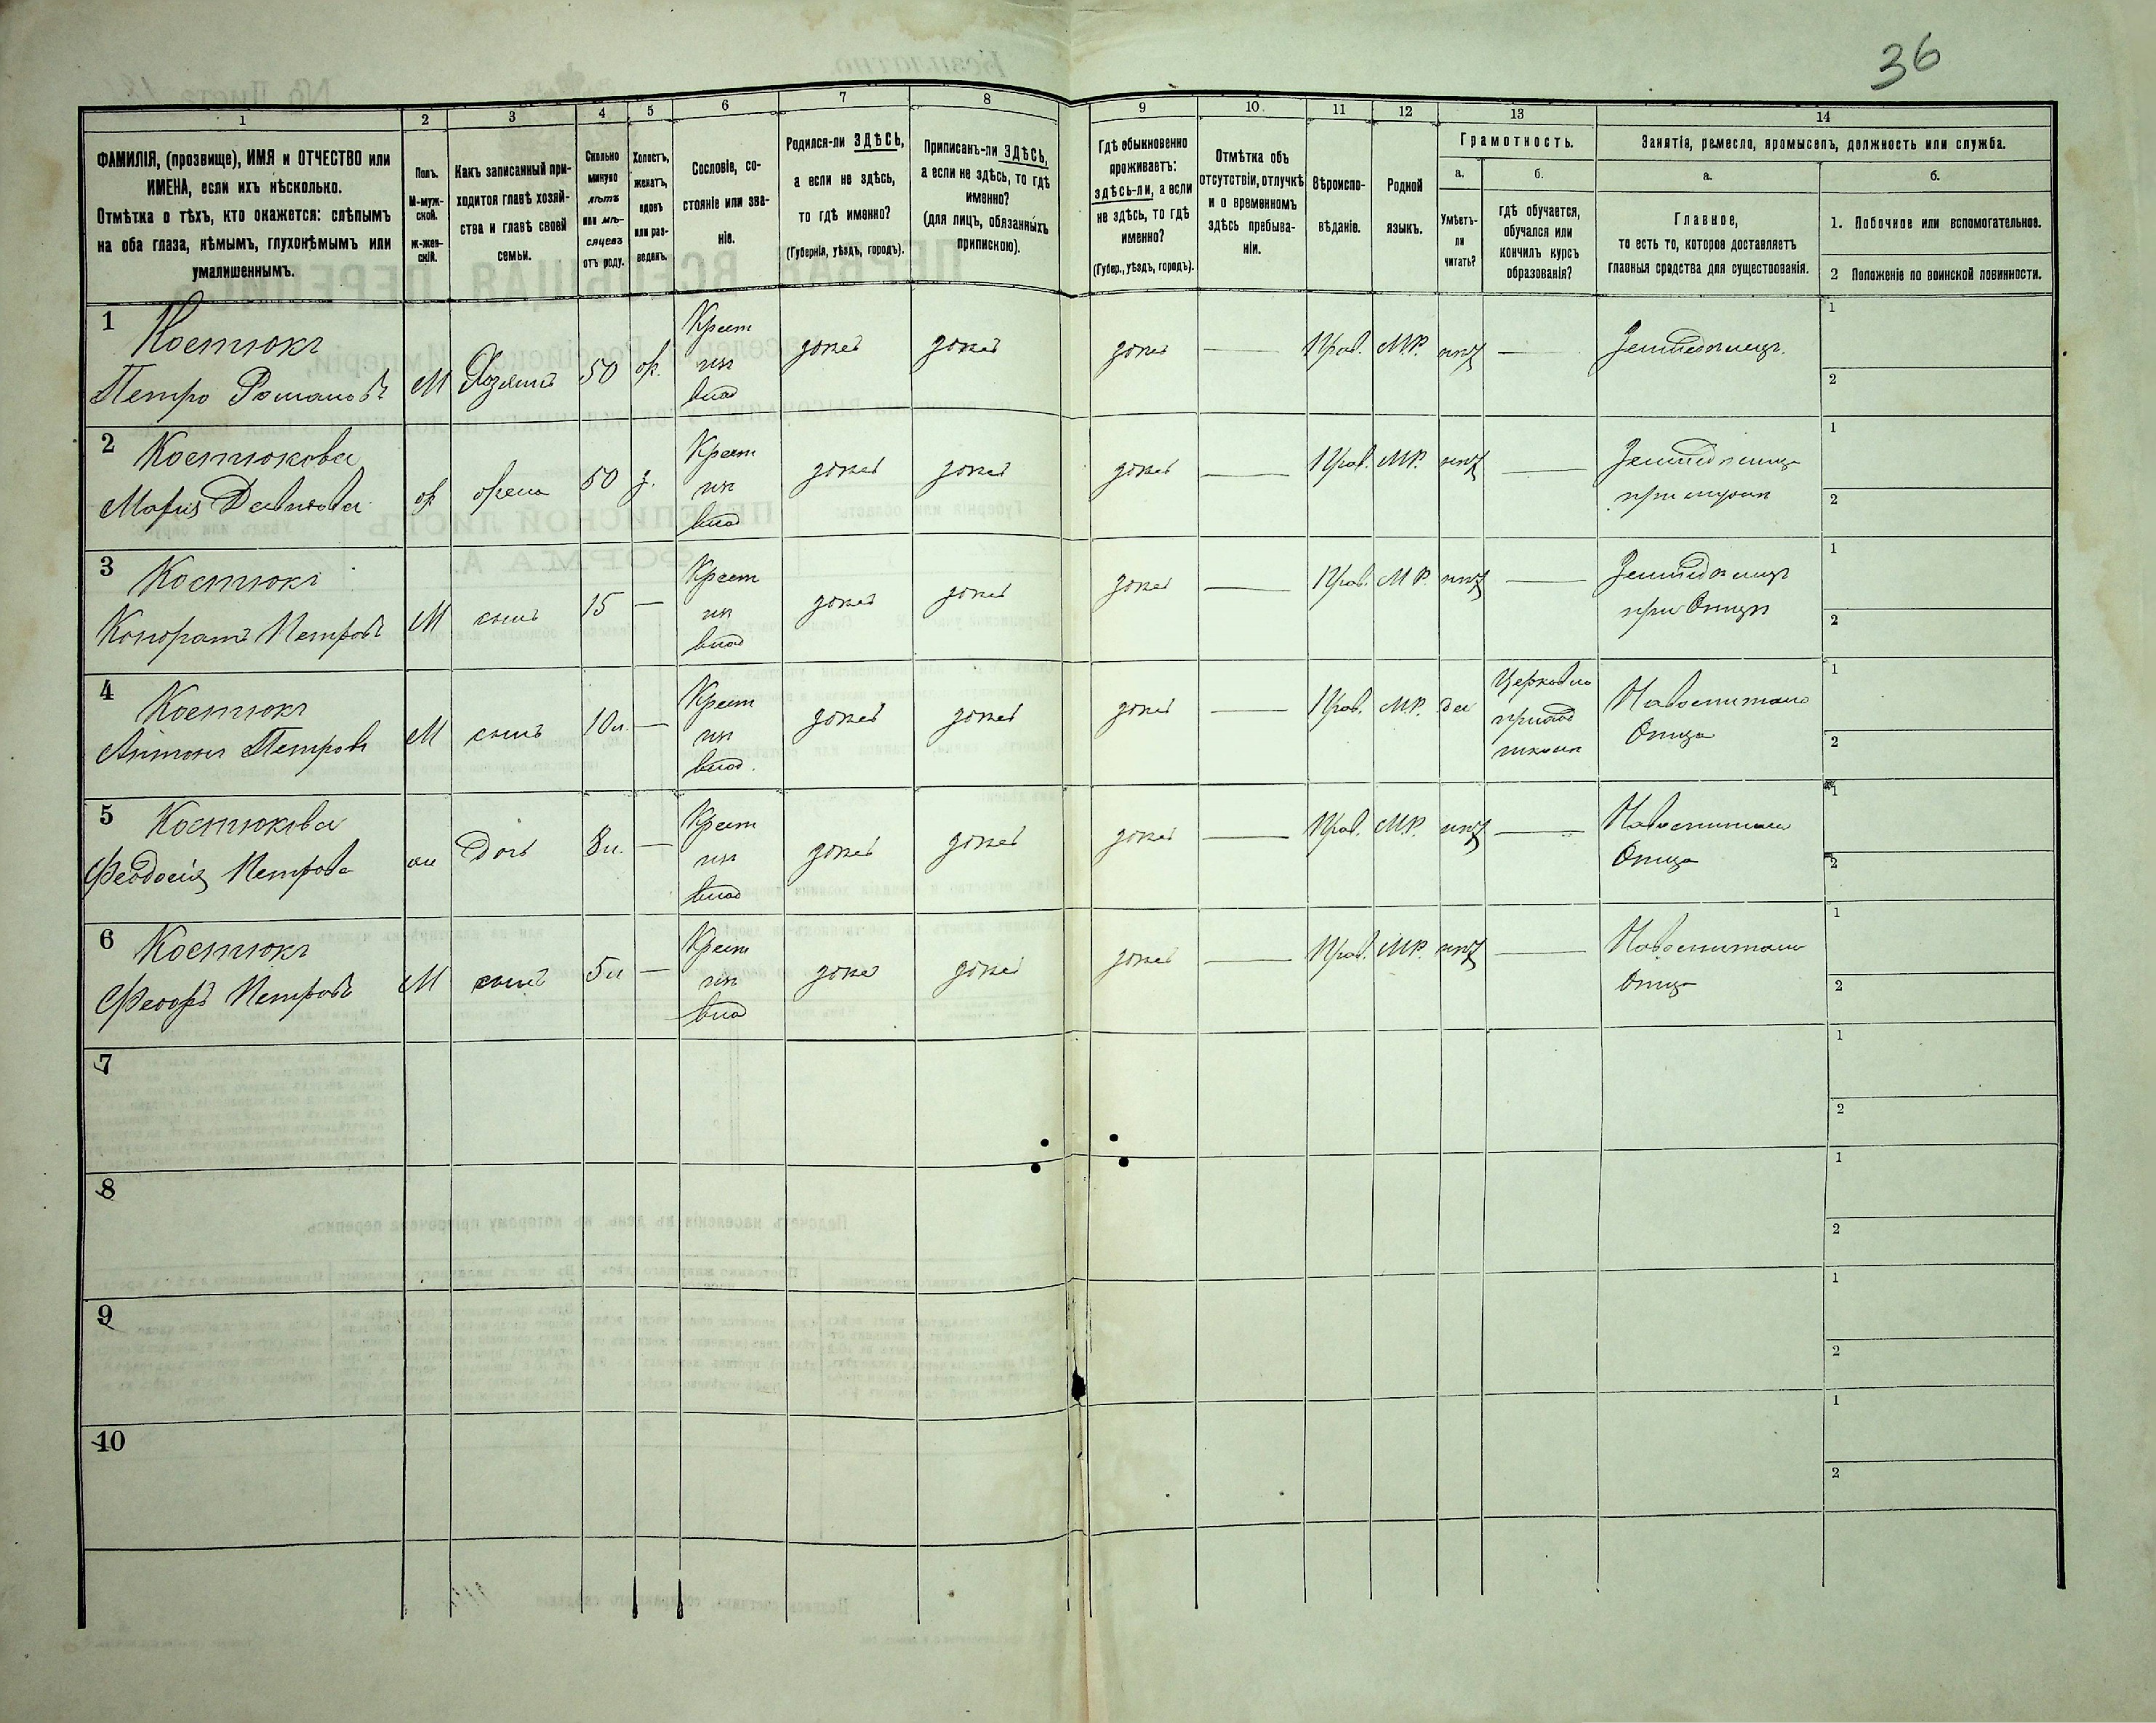 36
1 2 3 4 5 6 7 8 9 10. 11 12 13 14
ФАМИЛІЯ, (прозвище), ИМЯ и ОТЧЕСТВО или
ИМЕНА, если ихъ нѣсколько.
Отмѣтка о тѣхъ, кто окажется: слѣпымъ
на оба глаза, нѣмымъ, глухонѣмымъ или
умалишеннымъ.
Полъ.
М-муж-
ской.
Ж-жен-
скій.
Какъ записанный при-
ходится главѣ хозяй-
ства и главѣ своей
семьи.
Сколько
минуло
лѣтъ
или мѣ-
сяцевъ
отъ роду.
Холостъ,
женатъ,
вдовъ
или раз-
веденъ.
Сословіе, со-
стояніе или зва-
ніе.
Родился-ли ЗДѢСЬ,
а если не здѣсь,
то гдѣ именно?
(Губернія, уѣздъ, городъ).
Приписанъ-ли ЗДѢСЬ,
а если не здѣсь, то гдѣ
именно?
(для лицъ, обязанныхъ
припискою).
Гдѣ обыкновенно
проживаетъ:
здѣсь-ли, а если
не здѣсь, то гдѣ
именно?
(Губер., уѣздъ, городъ).
Отмѣтка объ
отсутствіи, отлучкѣ
и о временномъ
здѣсь пребыва-
ніи.
Вѣроиспо-
вѣданіе.
Родной
языкъ.
Грамотность.
а.
Умѣетъ-
ли
читать?
б.
гдѣ обучается,
обучался или
кончилъ курсъ
образованія?
Занятія, ремесло, промыселъ, должность или служба.
а.
Главное,
то есть то, которое доставляетъ
главныя средства для существованія.
б.
1. Побочное или вспомогательное.
2 Положеніе по воинской повинности.
1 Костюкъ
Петро Романовъ
М Хозяинъ 50 ж. Крест
изъ
влад
здесь здесь здесь — Прав. М.Р. нѣт — Земледелецъ.
1
2
2 Костюкова
Марія Давидова
ж жена 50 з. Крест
изъ
влад
здесь здесь здесь — Прав. М.Р. нѣт —
при мужѣ
1
2
3 Костюкъ
Кондратъ Петровъ
М сынъ 15 — Крест
изъ
влад
здесь здесь здесь — Прав. М.Р. нѣт — Земледелецъ
при Отцѣ
1
2
4 Костюкъ
Антонъ Петровъ
М сынъ 10л. — Крест
изъ
влад.
здесь здесь здесь — Прав. М.Р. да Церковно
приход
школѣ
Отца
1
2
5 Костюкова
Феодосія Петрова
ж Дочь 8л. — Крест
изъ
влад
здесь здесь здесь — Прав. М.Р. нѣт —
Отца
1
2
6 Костюкъ
Феодоръ Петровъ
М сынъ 5л — Крест
изъ
влад
здесь здесь здесь — Прав. М.Р. нѣт —
Отца
1
2
7
1
2
8
1
2
9
1
2
10
1
2